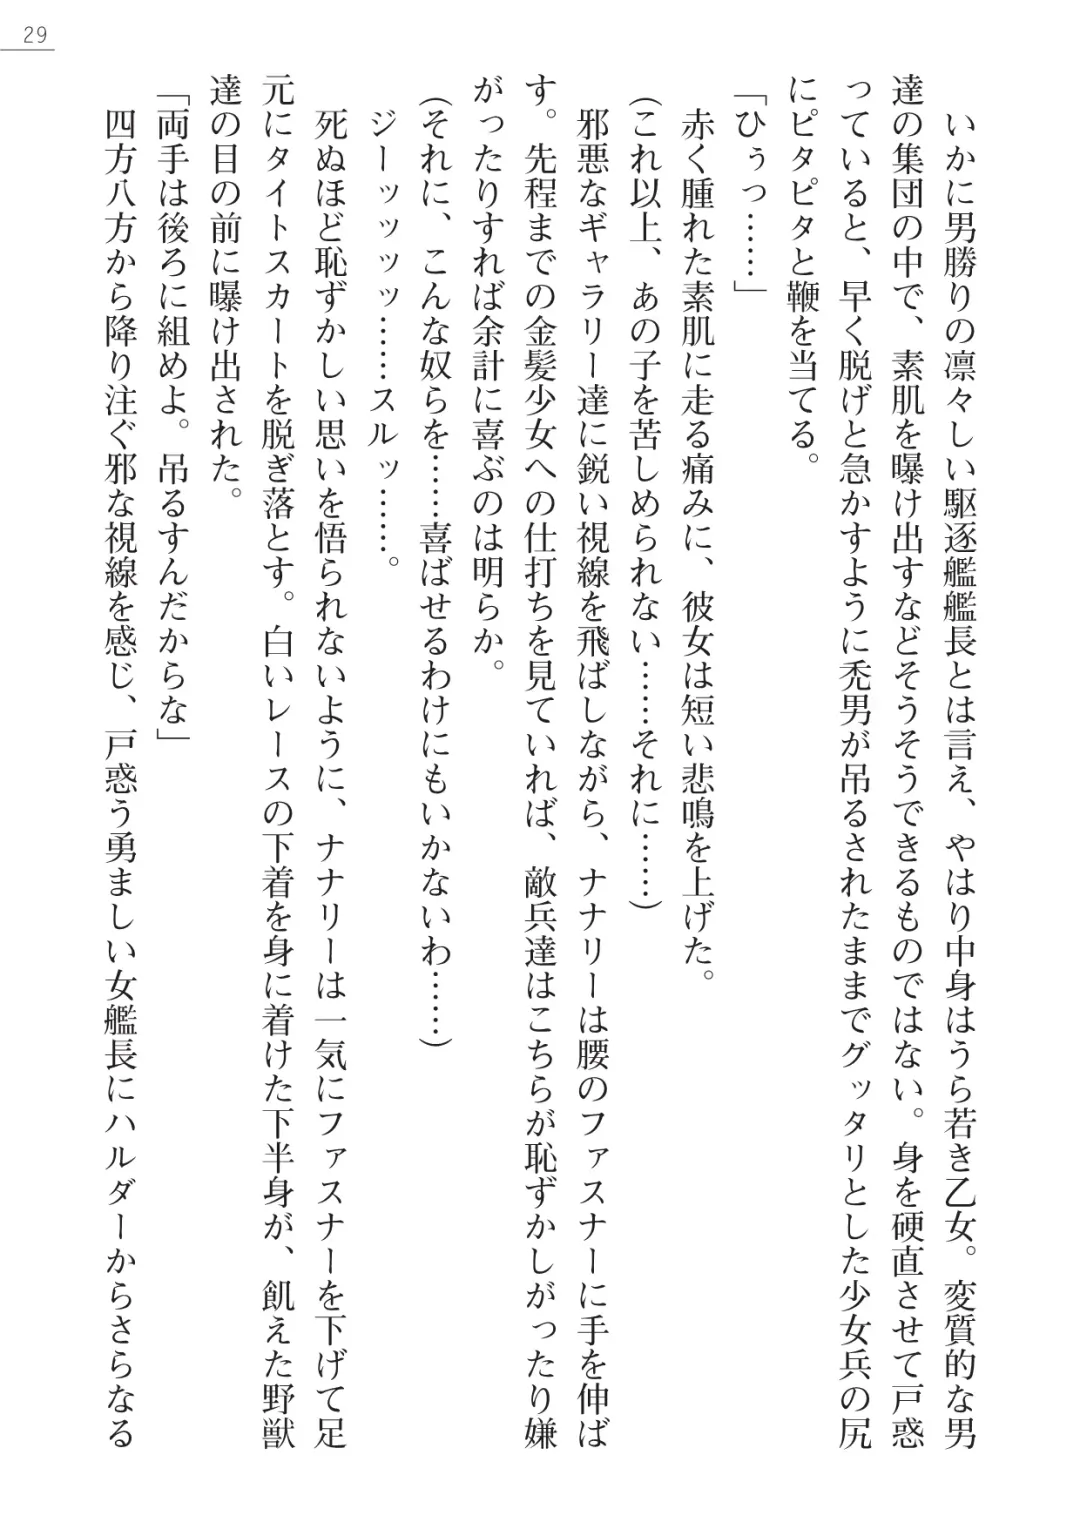 29
いかに男勝りの凛々しい駆逐艦艦長とは言え、やはり中身はうら若き乙女。変質的な男
達の集団の中で、素肌を曝け出すなどそうそうできるものではない。身を硬直させて戸惑
っていると、早く脱げと急かすように禿男が吊るされたままでグッタリとした少女兵の尻
にピタピタと鞭を当てる。
「ひぅっ……」
赤く腫れた素肌に走る痛みに、彼女は短い悲鳴を上げた。
(これ以上、あの子を苦しめられない……それに……)
邪悪なギャラリー達に鋭い視線を飛ばしながら、ナナリーは腰のファスナーに手を伸ば
す。先程までの金髪少女への仕打ちを見ていれば、敵兵達はこちらが恥ずかしがったり嫌
がったりすれば余計に喜ぶのは明らか。
(それに、こんな奴らを……喜ばせるわけにもいかないわ……)
ジーッッッッ……スルッ……。
死ぬほど恥ずかしい思いを悟られないように、ナナリーは一気にファスナーを下げて足
元にタイトスカートを脱ぎ落とす。白いレースの下着を身に着けた下半身が、飢えた野獣
達の目の前に曝け出された。
「両手は後ろに組めよ。吊るすんだからな」
四方八方から降り注ぐ邪な視線を感じ、戸惑う勇ましい女艦長にハルダーからさらなる